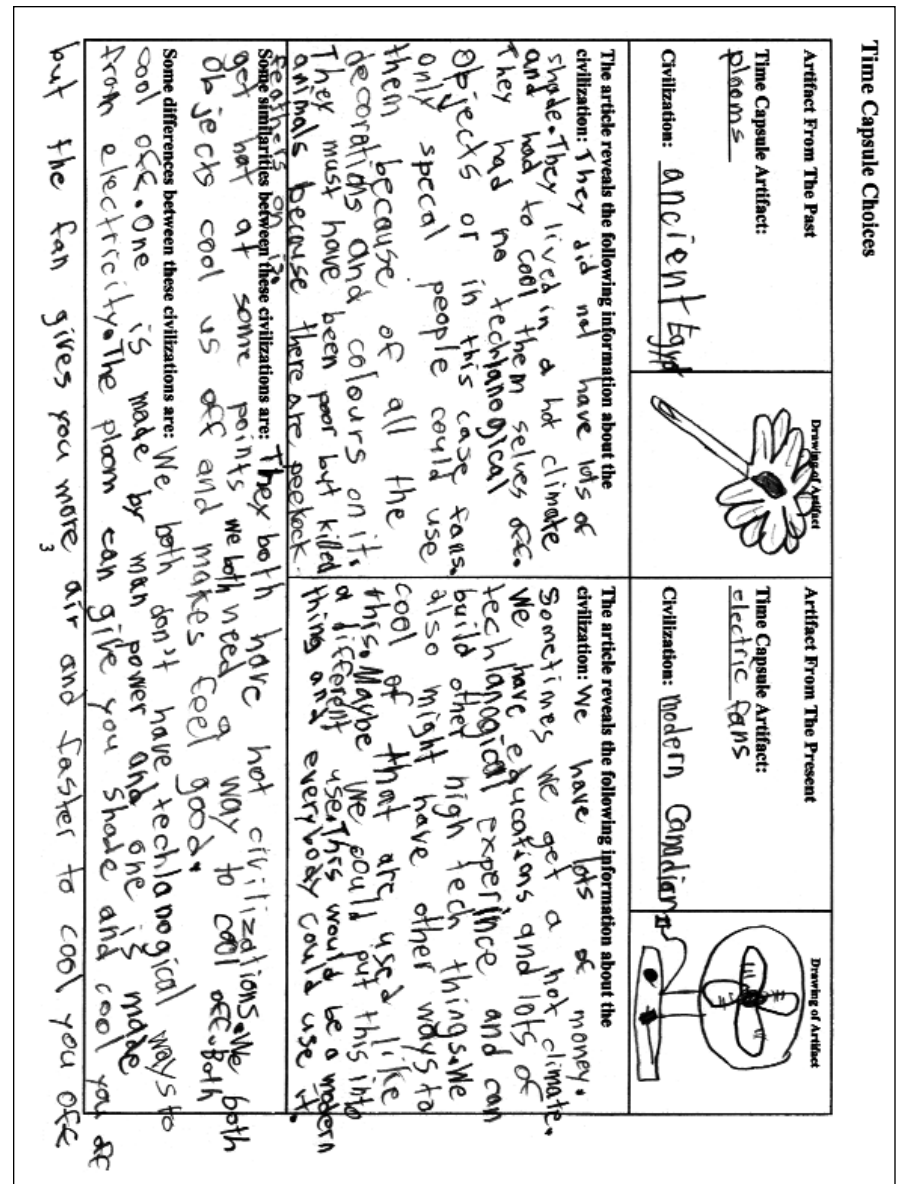 Time Capsule Choices
Artifact From The Past
Time Capsule Artifact:
plooms
Civilization: ancient Egypt
Drawing of Artifact
Artifact From The Present
Time Capsule Artifact:
electric fans
Civilization: modern Canadian
Drawing of Artifact
The article reveals the following information about the
civilization: They did not have lots of
shade. They lived in a hot climate
and had to cool them selves off.
They had no techlanogical
objects or in this case fans.
only specal people could use
them because of all the
decorations and colours on it.
They must have been poor but killed
animals because there are peckock
feathers on is.
The article reveals the following information about the
civilization: We have lots of money.
Sometimes we get a hot climate.
We have equcations and lots of
techlanogical experince and can
build other high tech things. We
also might have other ways to
cool of that are used like
this. Maybe we could put this into
a different use. This would be a modern
thing and everybody could use it.
Some similarities between these civilizations are: They both have hot civilizations. We both
get hot at some points we both need a way to cool off. Both
objects cool us off and makes feel good.
Some differences between these civilizations are: We both don't have techlanogical ways to
cool off. One is made by man power and one is made
from electricity. The ploom can give you shade and cool you of
but the fan gives you more air and faster to cool you off
3